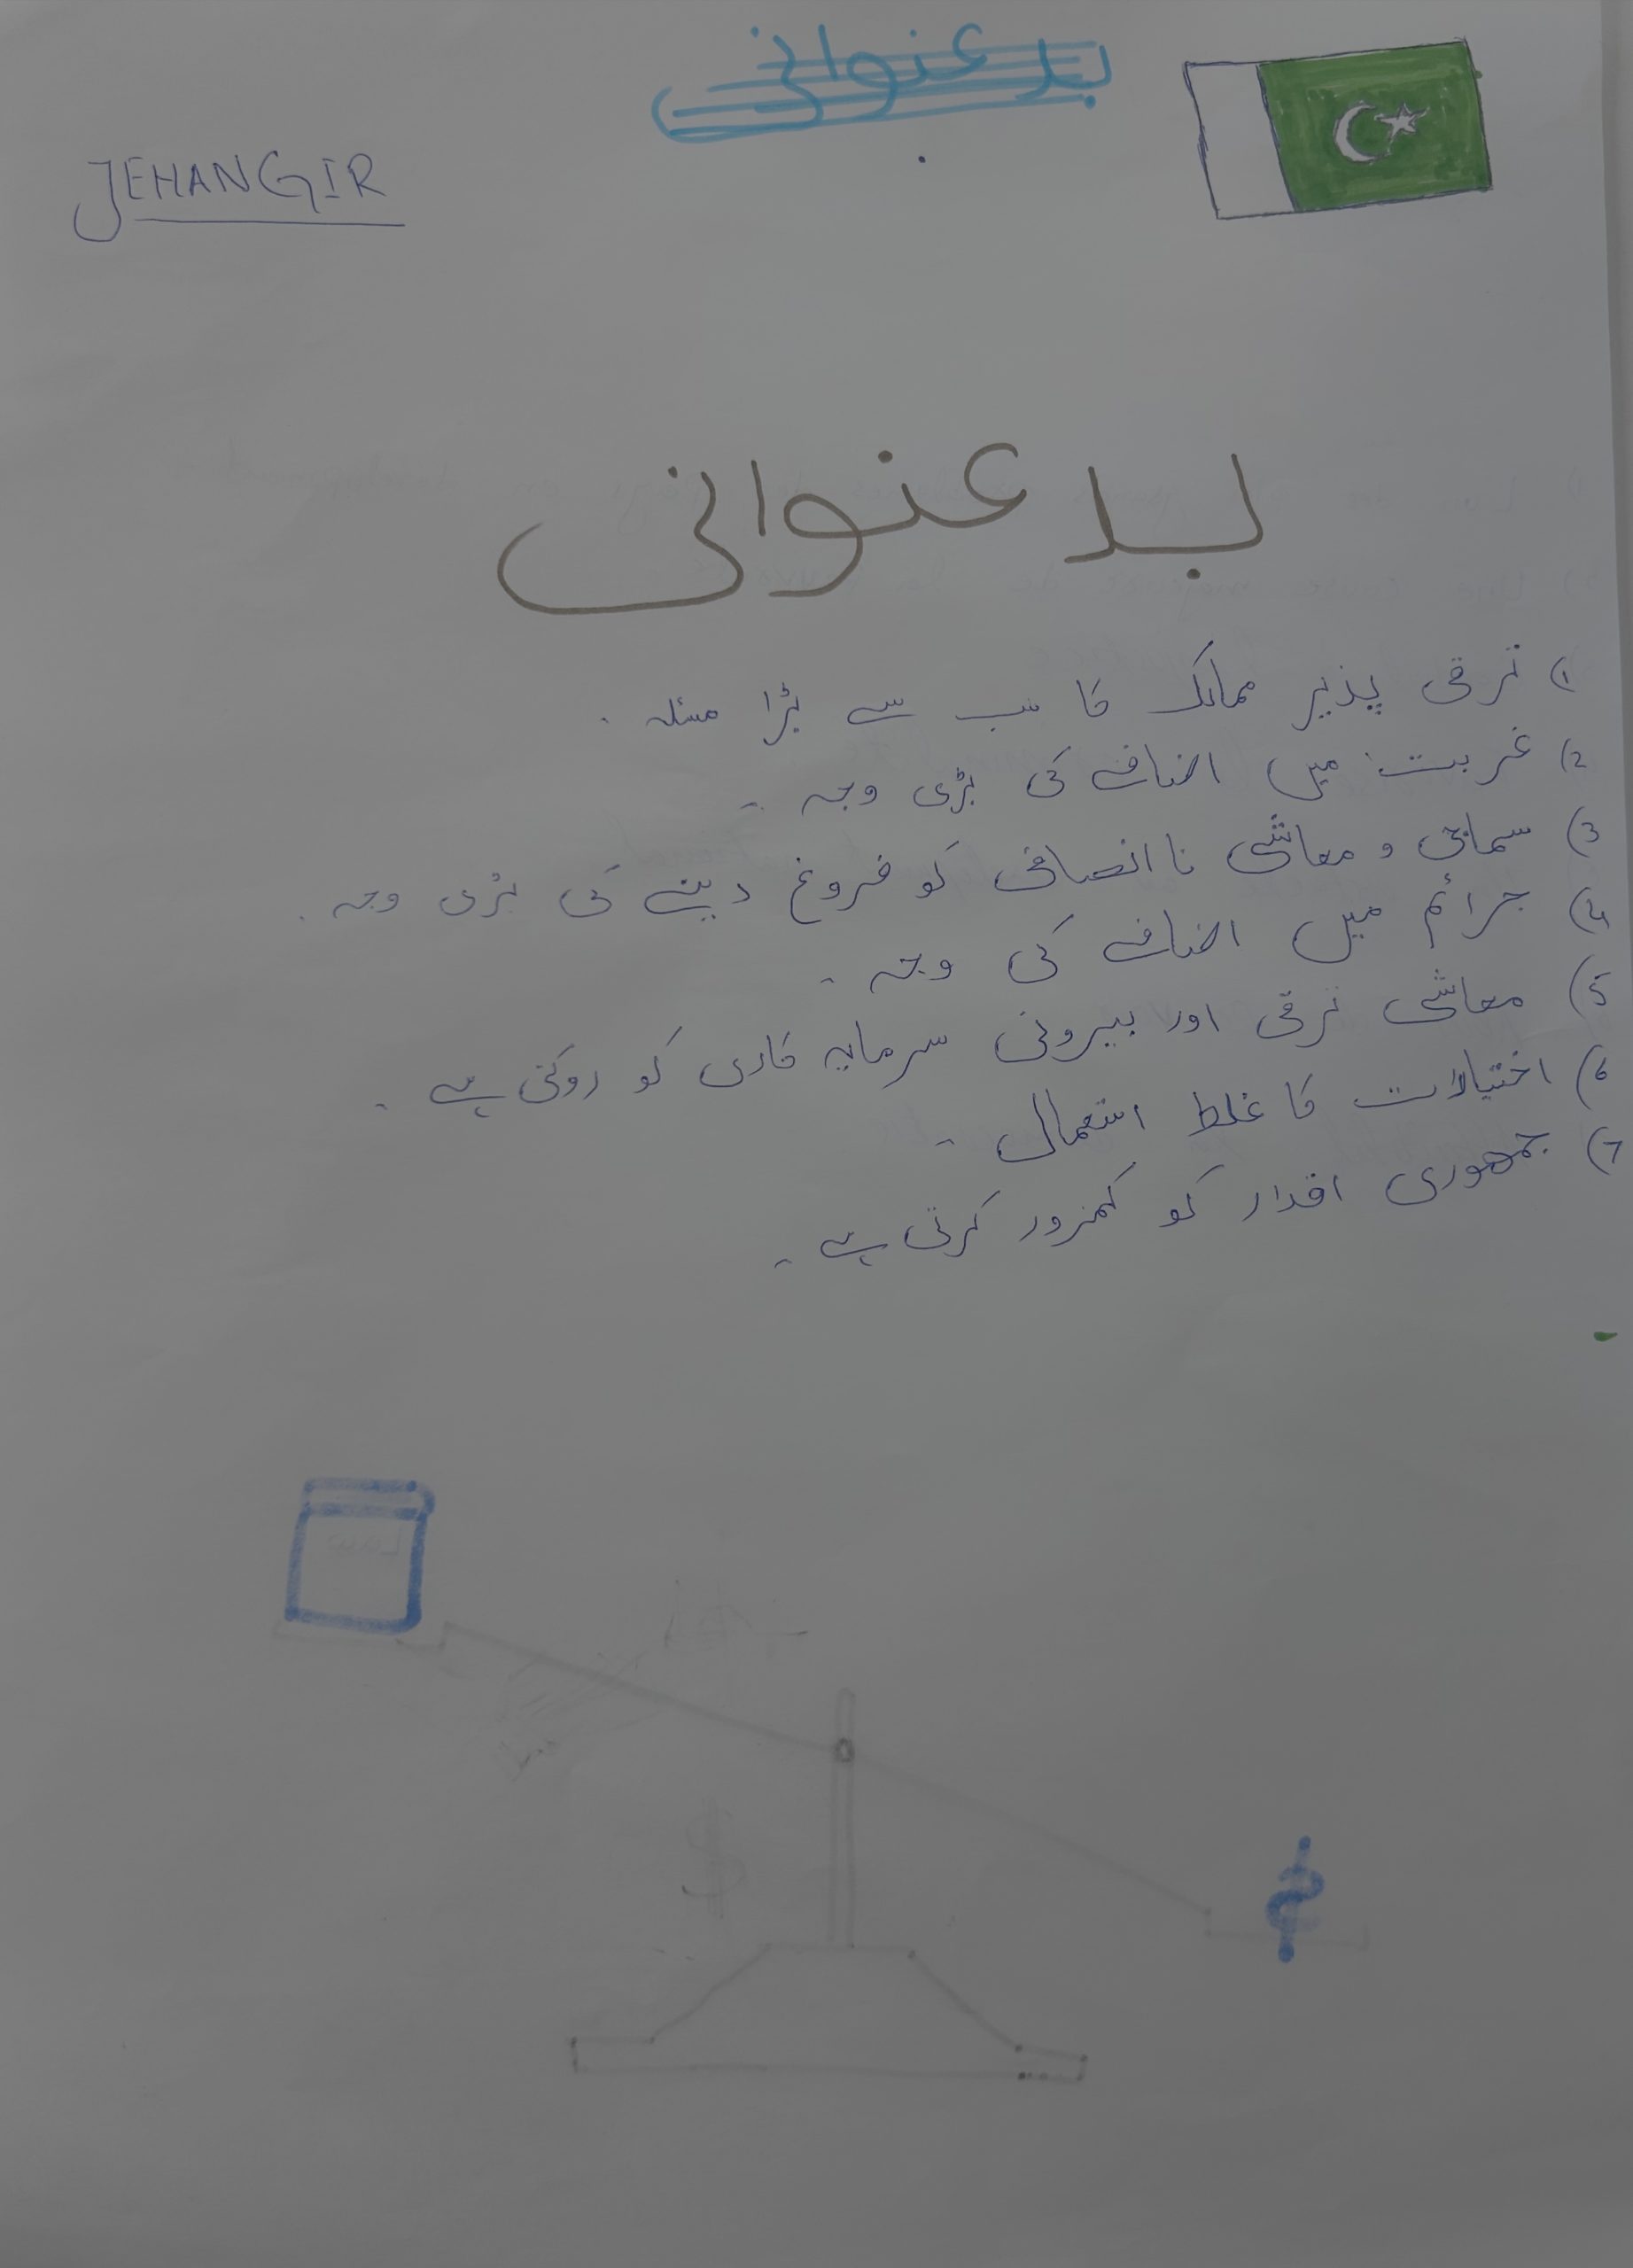 بدعنوانی
JEHANGIR
بدعنوانی
1) ترقی پذیر ممالک کا سب سے بڑا مسئلہ .
2) غربت میں اضافے کی بڑی وجہ ۔
3) سماجی و معاشی ناانصافی کو فروغ دینے کی بڑی وجہ .
4) جرائم میں اضافے کی وجہ ۔
5) معاشی ترقی اور بیرونی سرمایہ کاری کو روکتی ہے ۔
6) اختیارات کا غلط استعمال ۔
7) جمہوری اقدار کو کمزور کرتی ہے ۔
Law
$
$